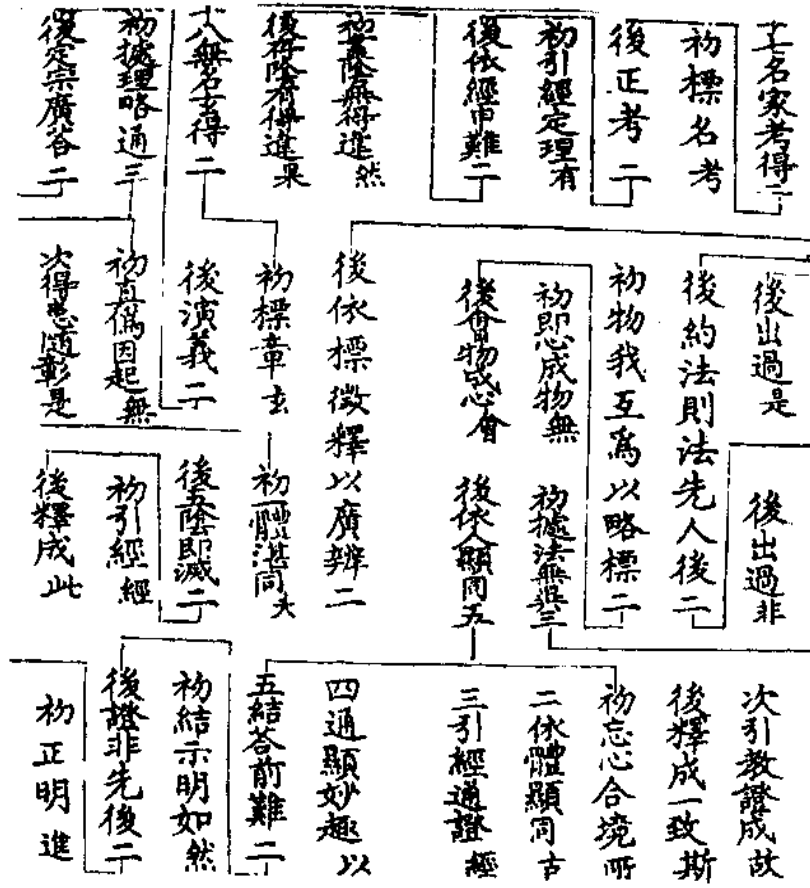 十七名家考得二
初標名考
後正考二
初引經定理有
後依經申難二
初五陰無得進然
後存陰有得違果
十八無名玄得二
初據理略通三
後定宗廣答二
後出過是
後約法則法先人後二
初物我互為以略標二
初即心成物無
後會物成心會
後依標徵釋以廣辨二
初標章玄
後演義二
初真偽因起無
次得患隨彰是
後出過非
初據法無異三
後依人顯同五
初一體湛同夫
後五陰即滅二
初引經經
後釋成此
次引教證成故
後釋成一致斯
初忘心合境所
二依體顯同古
三引經通證經
四通顯妙趣以
五結答前難二
初結示明如然
後證非先後二
初正明進